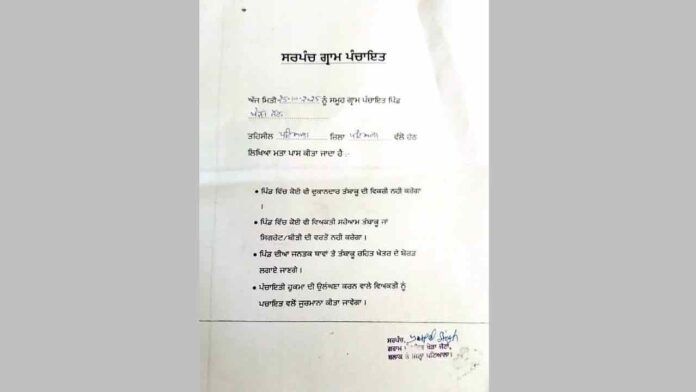 ਸਰਪੰਚ ਗ੍ਰਾਮ ਪੰਚਾਇਤ
ਅੱਜ ਮਿਤੀ ਨੂੰ ਸਮੂਹ ਗ੍ਰਾਮ ਪੰਚਾਇਤ ਪਿੰਡ
ਤਹਿਸੀਲ ਪਟਿਆਲਾ ਜਿਲਾ ਪਟਿਆਲਾ ਵੱਲੋਂ ਹੇਠ
ਲਿਖਿਆ ਮਤਾ ਪਾਸ ਕੀਤਾ ਜਾਂਦਾ ਹੈ :
• ਪਿੰਡ ਵਿੱਚ ਕੋਈ ਵੀ ਦੁਕਾਨਦਾਰ ਤੰਬਾਕੂ ਦੀ ਵਿਕਰੀ ਨਹੀ ਕਰੇਗਾ
।
• ਪਿੰਡ ਵਿੱਚ ਕੋਈ ਵੀ ਵਿਅਕਤੀ ਸਰੇਆਮ ਤੰਬਾਕੂ ਜਾਂ
ਸਿਗਰੇਟ/ਬੀੜੀ ਦੀ ਵਰਤੋਂ ਨਹੀ ਕਰੇਗਾ ।
• ਪਿੰਡ ਦੀਆ ਜਨਤਕ ਥਾਵਾਂ ਤੇ ਤੰਬਾਕੂ ਰਹਿਤ ਖੇਤਰ ਦੇ ਬੋਰਡ
ਲਗਾਏ ਜਾਣਗੇ ।
• ਪੰਚਾਇਤੀ ਹੁਕਮਾ ਦੀ ਉਲੰਘਣਾ ਕਰਨ ਵਾਲੇ ਵਿਅਕਤੀ ਨੂੰ
ਪਚਾਇਤ ਵਲੋਂ ਜੁਰਮਾਨਾ ਕੀਤਾ ਜਾਵੇਗਾ ।
ਸਰਪੰਚ, Singh
ਗਰਾਮ ਖੇੜਾ ਜੱਟਾਂ,
ਬਲਾਕ ਤੇ ਜ਼ਿਲ੍ਹਾ ਪਟਿਆਲਾ।